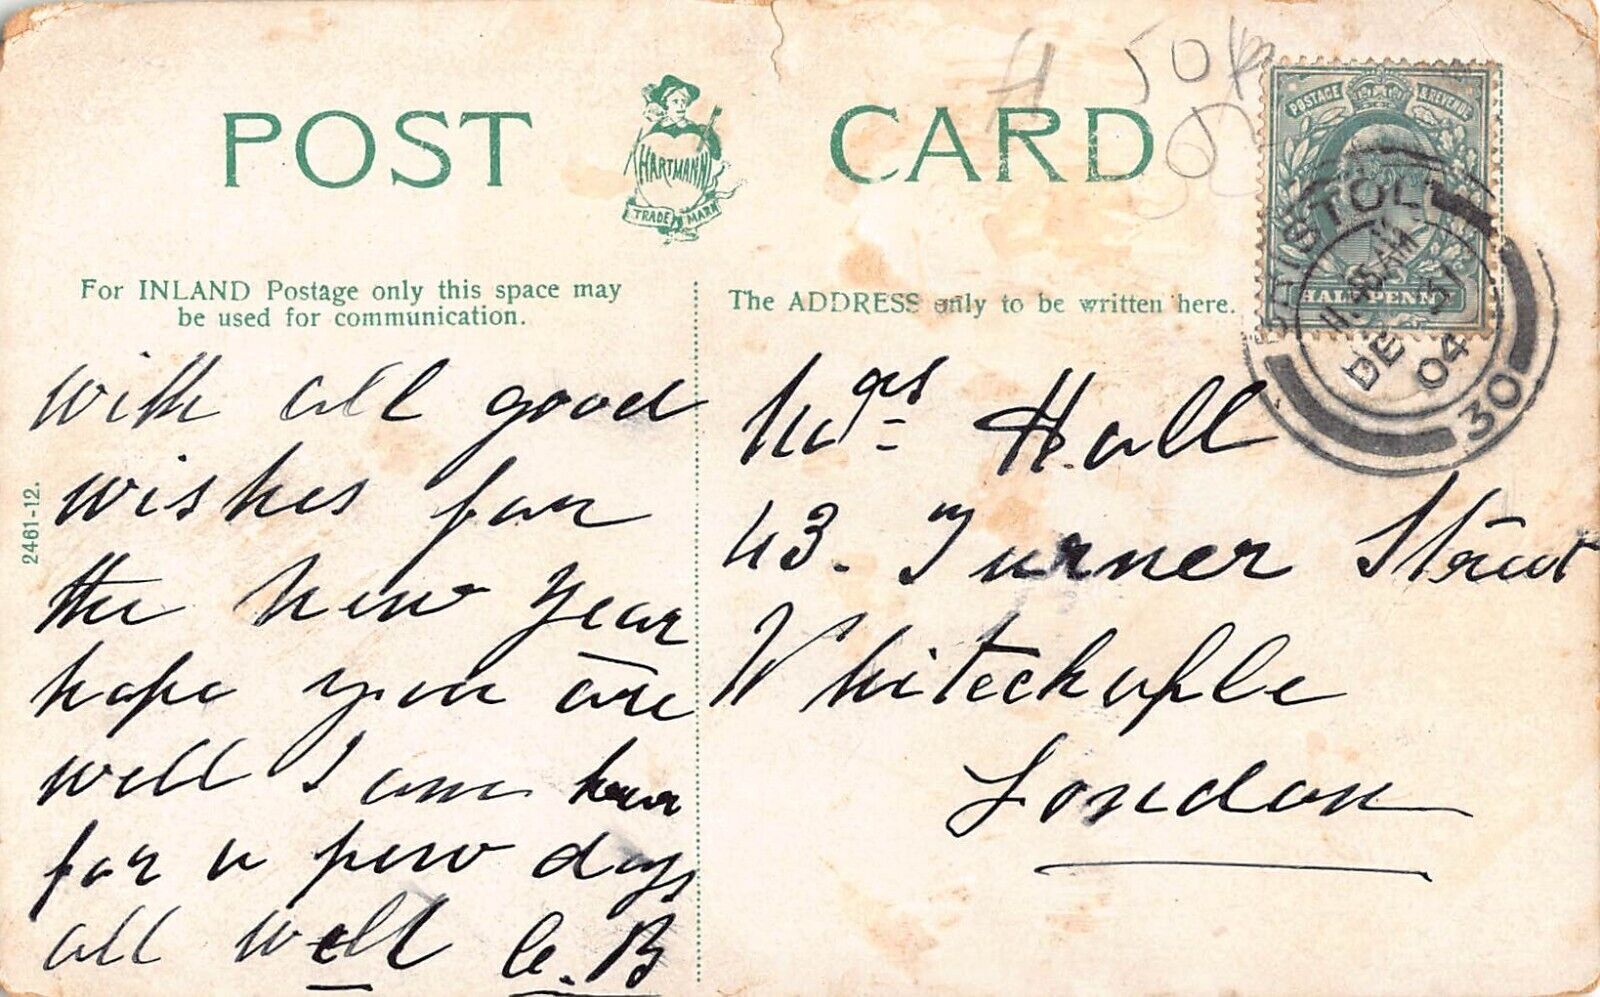 POST CARD
HARTMANN
TRADE MARK
H 50
POSTAGE & REVENUE
HALFPENNY
BRISTOL
11.45 AM
DE 31
04
30
For INLAND Postage only this space may
be used for communication.
The ADDRESS only to be written here.
2461-12.
with all good
wishes for
the New Year
hope you are
well I am here
for a few days
all well C. B
Mrs Hall
43. Turner Street
Whitechaple
London